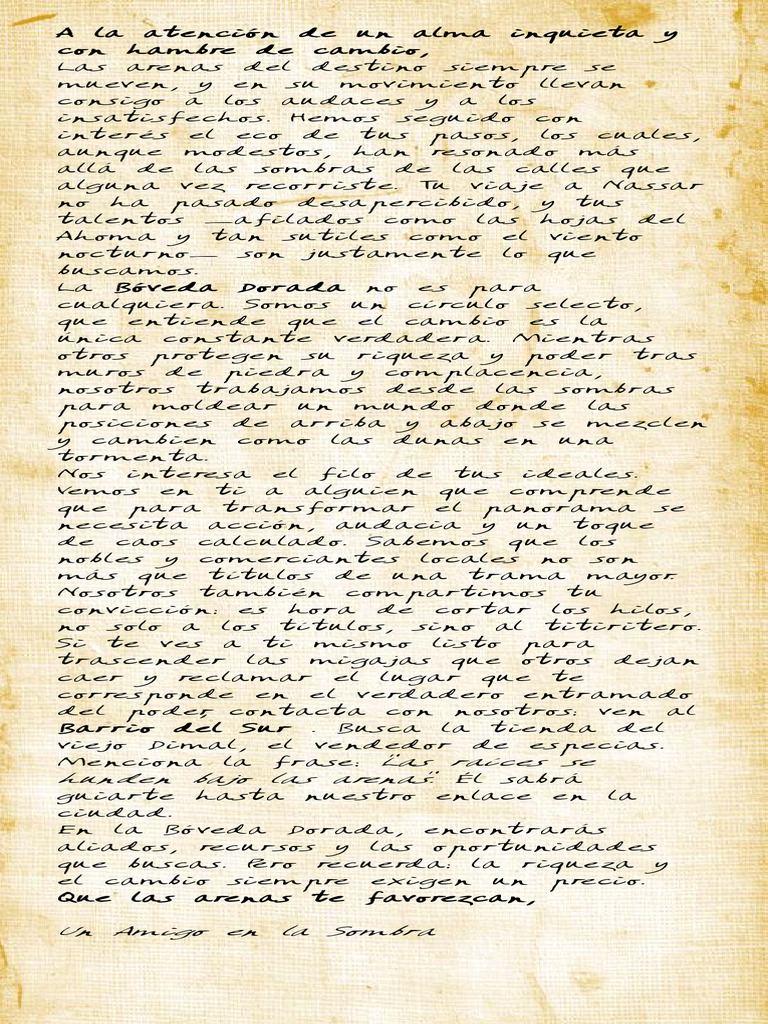 A la atención de un alma inquieta y
con hambre de cambio,
Las arenas del destino siempre se
mueven, y en su movimiento llevan
consigo a los audaces y a los
insatisfechos. Hemos seguido con
interés el eco de tus pasos, los cuales,
aunque modestos, han resonado más
allá de las sombras de las calles que
alguna vez recorriste. Tu viaje a Nassar
no ha pasado desapercibido, y tus
talentos —afilados como las hojas del
Ahoma y tan sutiles como el viento
nocturno— son justamente lo que
buscamos.
La Bóveda Dorada no es para
cualquiera. Somos un círculo selecto,
que entiende que el cambio es la
única constante verdadera. Mientras
otros protegen su riqueza y poder tras
muros de piedra y complacencia,
nosotros trabajamos desde las sombras
para moldear un mundo donde las
posiciones de arriba y abajo se mezclen
y cambien como las dunas en una
tormenta.
Nos interesa el filo de tus ideales.
Vemos en ti a alguien que comprende
que para transformar el panorama se
necesita acción, audacia y un toque
de caos calculado. Sabemos que los
nobles y comerciantes locales no son
más que títulos de una trama mayor.
Nosotros también compartimos tu
convicción: es hora de cortar los hilos,
no solo a los títulos, sino al titiritero.
Si te ves a ti mismo listo para
trascender las migajas que otros dejan
caer y reclamar el lugar que te
corresponde en el verdadero entramado
del poder, contacta con nosotros: ven al
Barrio del Sur . Busca la tienda del
viejo Dimal, el vendedor de especias.
Menciona la frase: "Las raíces se
hunden bajo las arenas". Él sabrá
guiarte hasta nuestro enlace en la
ciudad.
En la Bóveda Dorada, encontrarás
aliados, recursos y las oportunidades
que buscas. Pero recuerda: la riqueza y
el cambio siempre exigen un precio.
Que las arenas te favorezcan,
Un Amigo en la Sombra